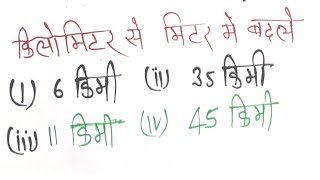 किलोमिटर से मिटर मे बदले
(i) 6 किमी (ii) 35 किमी
(iii) 11 किमी (iv) 45 किमी